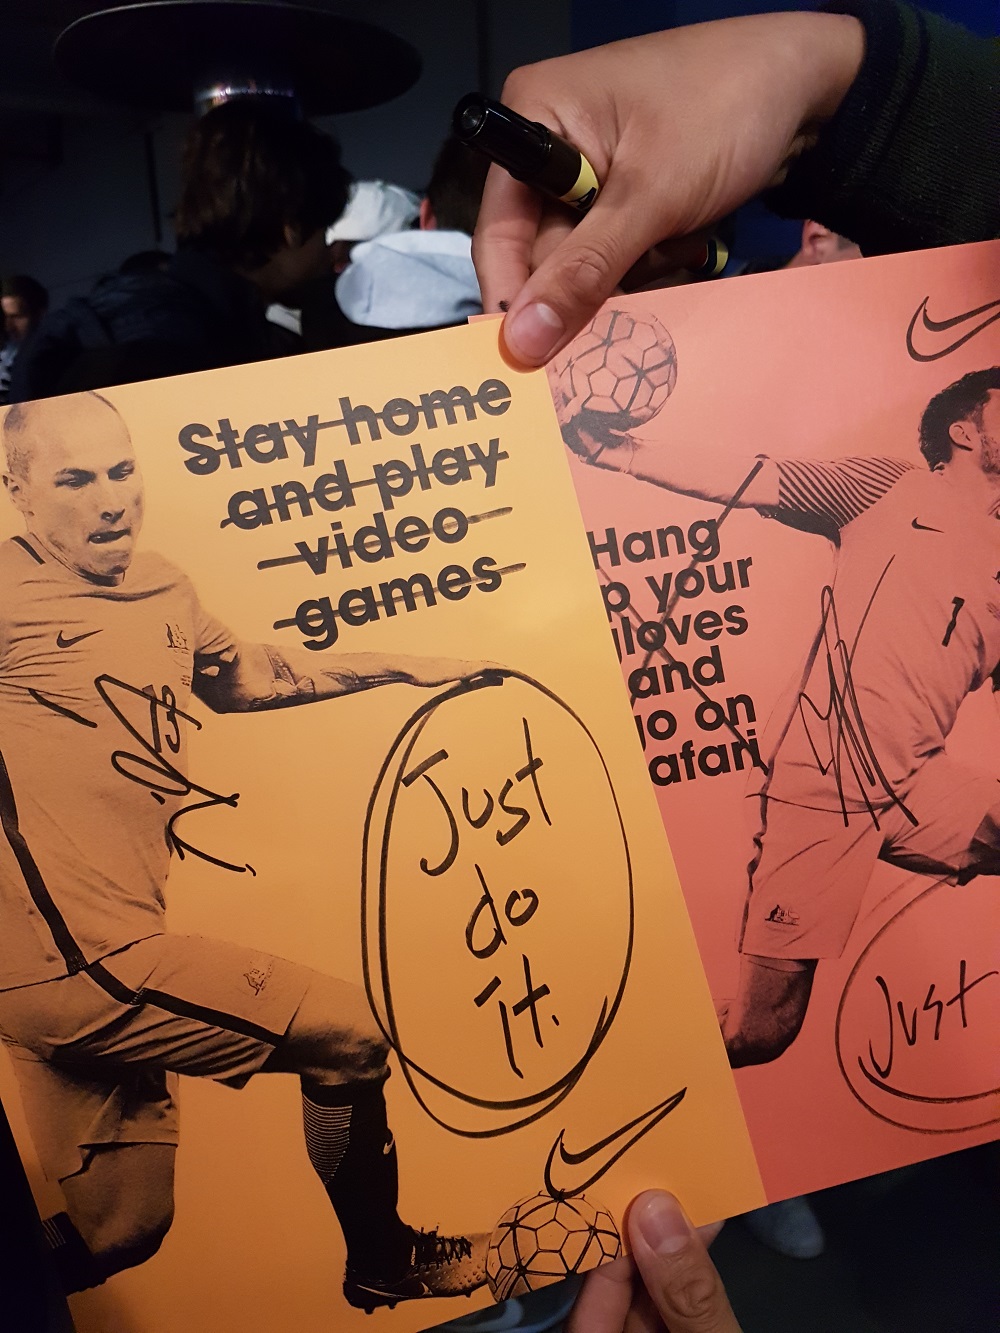 Stay home
and play
video
games
Just
do
it.
Hang
p your
loves
and
go on
afari
1
Just